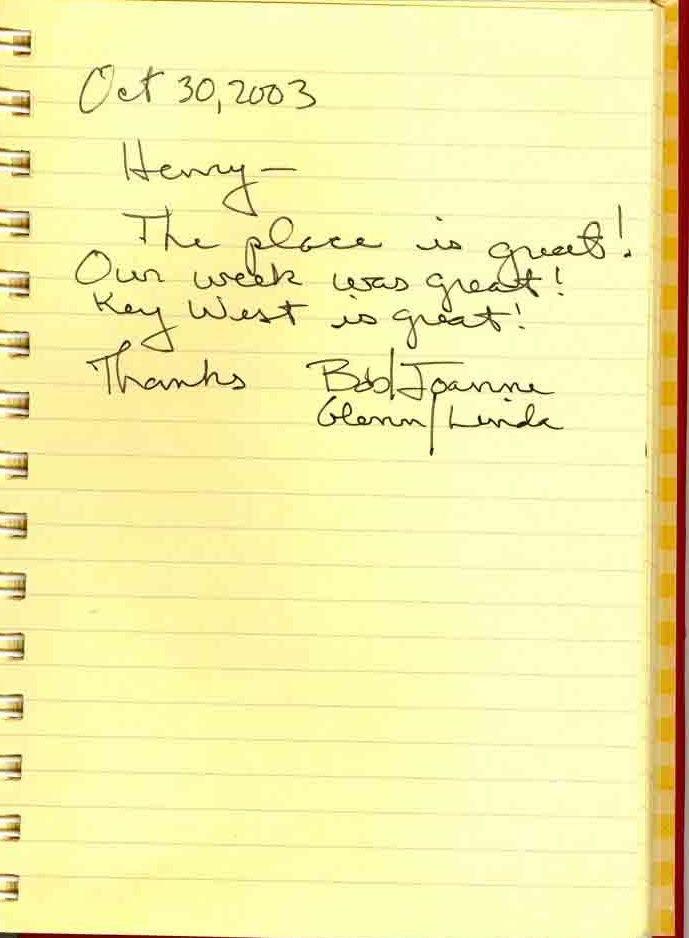 Oct 30, 2003
Henry—
The place is great!
Our week was great!
Key West is great!
Thanks Bob/Joanne
Glenn/Linda